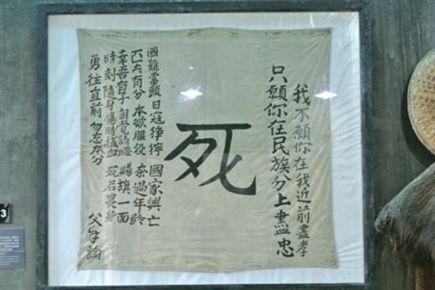 我不願你在我近前盡孝
只願你在民族分上盡忠
死
國難當頭日寇猙獰國家興亡
匹夫有分本欲服役奈過年齡
幸吾有子自覺請纓賜旗一面
時刻隨身傷時拭血死后裹身
勇往直前勿忘本分
父手諭
3